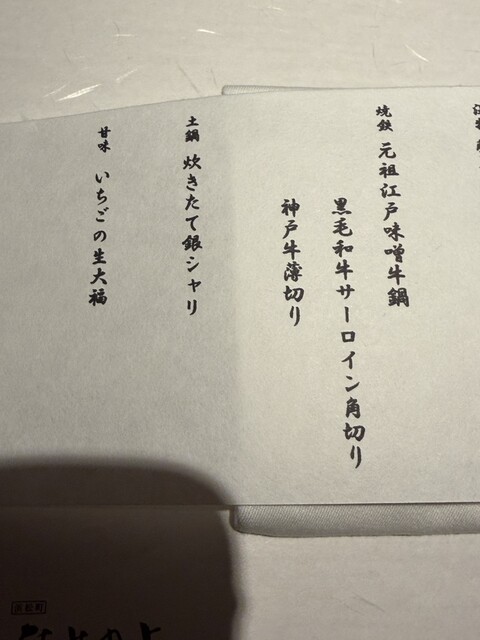 焼鉄 元祖江戸味噌牛鍋
黒毛和牛サーロイン角切り
神戸牛薄切り
土鍋 炊きたて銀シャリ
甘味 いちごの生大福
浜松町